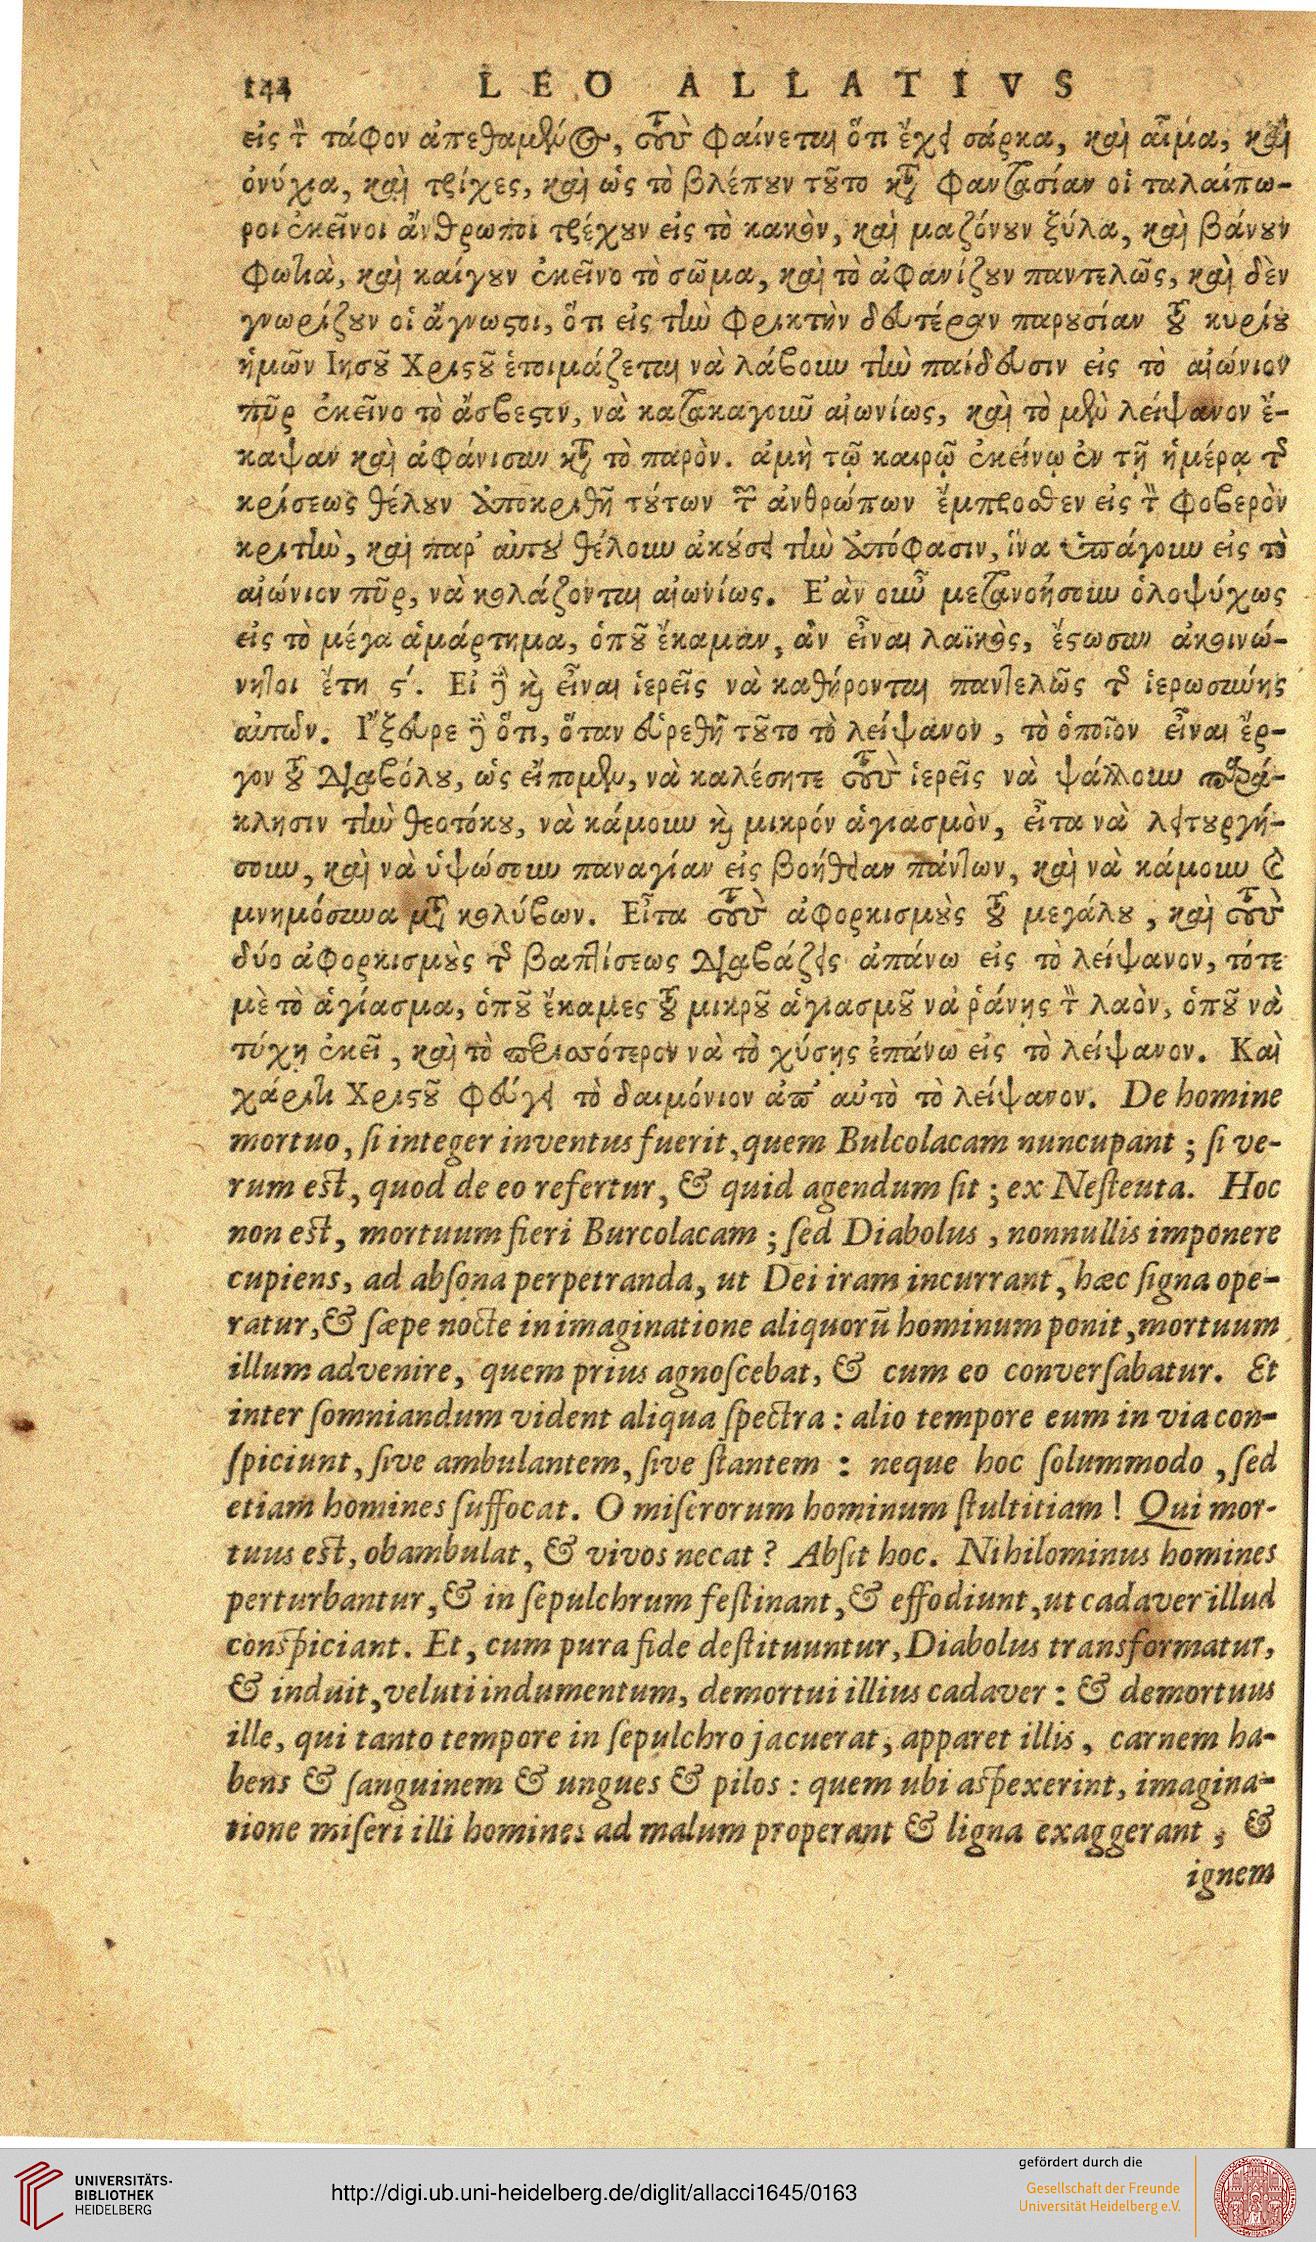 144 LEO ALLATIVS
εἰς τ̀ τάφον ἀπεθαμμένος, τοὺς φαίνεται ὅτι ἔχει σάρκα, καὶ αἷμα, καὶ
ὀνύχια, καὶ τρίχες, καὶ ὡς τὸ βλέπουν τοῦτο κατὰ φαντασίαν οἱ ταλαίπω-
ροι ἐκεῖνοι ἄνθρωποι τρέχουν εἰς τὸ κακὸν, καὶ μαζόνουν ξύλα, καὶ βάνουν
φωτιὰ, καὶ καίγουν ἐκεῖνο τὸ σῶμα, καὶ τὸ ἀφανίζουν παντελῶς, καὶ δὲν
γνωρίζουν οἱ ἄγνωστοι, ὅτι εἰς τὴν φρικτὴν δευτέραν παρουσίαν τοῦ κυρίου
ἡμῶν Ιησοῦ Χριστοῦ ἑτοιμάζεται νὰ λάβουν τὴν παίδευσιν εἰς τὸ αἰώνιον
πῦρ ἐκεῖνο τὸ ἄσβεστιν, νὰ κατακαγοῦν αἰωνίως, καὶ τὸ μὲν λείψανον ἔ-
καψαν καὶ ἀφάνισαν κατὰ τὸ παρὸν. ἀμὴ τῷ καιρῷ ἐκείνῳ ἐν τῇ ἡμέρᾳ τῆς
κρίσεως θέλουν ἀποκριθῆ τούτων τῶν ἀνθρώπων ἔμπροσθεν εἰς τὸν φοβερὸν
κριτὴν, καὶ παρ' αὐτοῦ θέλουν ἀκούσει τὴν ἀπόφασιν, ἵνα ὑπάγουν εἰς τὸ
αἰώνιον πῦρ, νὰ κολάζονται αἰωνίως. Ἐὰν οὖν μετανοήσουν ὁλοψύχως
εἰς τὸ μέγα ἁμάρτημα, ὁποῦ ἔκαμαν, ἂν εἶναι λαϊκοὶς, ἔστωσαν ἀκοινώ-
νητοι ἔτη ϛ΄. Εἰ δὲ καὶ εἶναι ἱερεῖς νὰ καθήρονται παντελῶς τῆς ἱερωσύνης
αὐτῶν. Ἴξευρε δὲ ὅτι, ὅταν εὑρεθῆ τοῦτο τὸ λείψανον, τὸ ὁποῖον εἶναι ἔρ-
γον τοῦ Διαβόλου, ὡς εἴπομεν, νὰ καλέσητε τοὺς ἱερεῖς νὰ ψάλλουν παρά-
κλησιν τὴν θεοτόκου, νὰ κάμουν καὶ μικρόν ἁγιασμὸν, εἶτα νὰ λειτουργή-
σουν, καὶ νὰ ὑψώσουν παναγίαν εἰς βοήθειαν πάντων, καὶ νὰ κάμουν καὶ
μνημόσυνα μετὰ κολύβων. Εἶτα τοὺς ἀφορκισμοὺς τοῦ μεγάλου, καὶ τοὺς
δύο ἀφορκισμοὺς τῆς βαπτίσεως διαβάζεις ἀπάνω εἰς τὸ λείψανον, τότε
μὲ τὸ ἁγίασμα, ὁποῦ ἔκαμες τοῦ μικροῦ ἁγιασμοῦ νὰ ῥάνῃς τὸν λαὸν, ὁποῦ νὰ
τύχῃ ἐκεῖ, καὶ τὸ περισσότερον νὰ τὸ χύσῃς ἐπάνω εἰς τὸ λείψανον. Καὶ
χάριτι Χριστοῦ φεύγει τὸ δαιμόνιον ἀπ' αὐτὸ τὸ λείψανον. De homine
mortuo, si integer inventus fuerit, quem Bulcolacam nuncupant; si ve-
rum est, quod de eo refertur, & quid agendum sit; ex Nesteuta. Hoc
non est, mortuum fieri Burcolacam; sed Diabolus, nonnullis imponere
cupiens, ad absona perpetranda, ut Dei iram incurrant, hæc signa ope-
ratur, & sæpe nocte in imaginatione aliquorū hominum ponit, mortuum
illum advenire, quem prius agnoscebat, & cum eo conversabatur. Et
inter somniandum vident aliqua spectra: alio tempore eum in via con-
spiciunt, sive ambulantem, sive stantem: neque hoc solummodo, sed
etiam homines suffocat. O miserorum hominum stultitiam! Qui mor-
tuus est, obambulat, & vivos necat? Absit hoc. Nihilominus homines
perturbantur, & in sepulchrum festinant, & effodiunt, ut cadaver illud
conspiciant. Et, cum pura fide destituuntur, Diabolus transformatur,
& induit, veluti indumentum, demortui illius cadaver: & demortuus
ille, qui tanto tempore in sepulchro jacuerat, apparet illis, carnem ha-
bens & sanguinem & ungues & pilos: quem ubi aspexerint, imagina-
tione miseri illi homines ad malum properant & ligna exaggerant, &
ignem
UNIVERSITÄTS-
BIBLIOTHEK
HEIDELBERG
http://digi.ub.uni-heidelberg.de/diglit/allacci1645/0163
gefördert durch die
Gesellschaft der Freunde
Universität Heidelberg e.V.